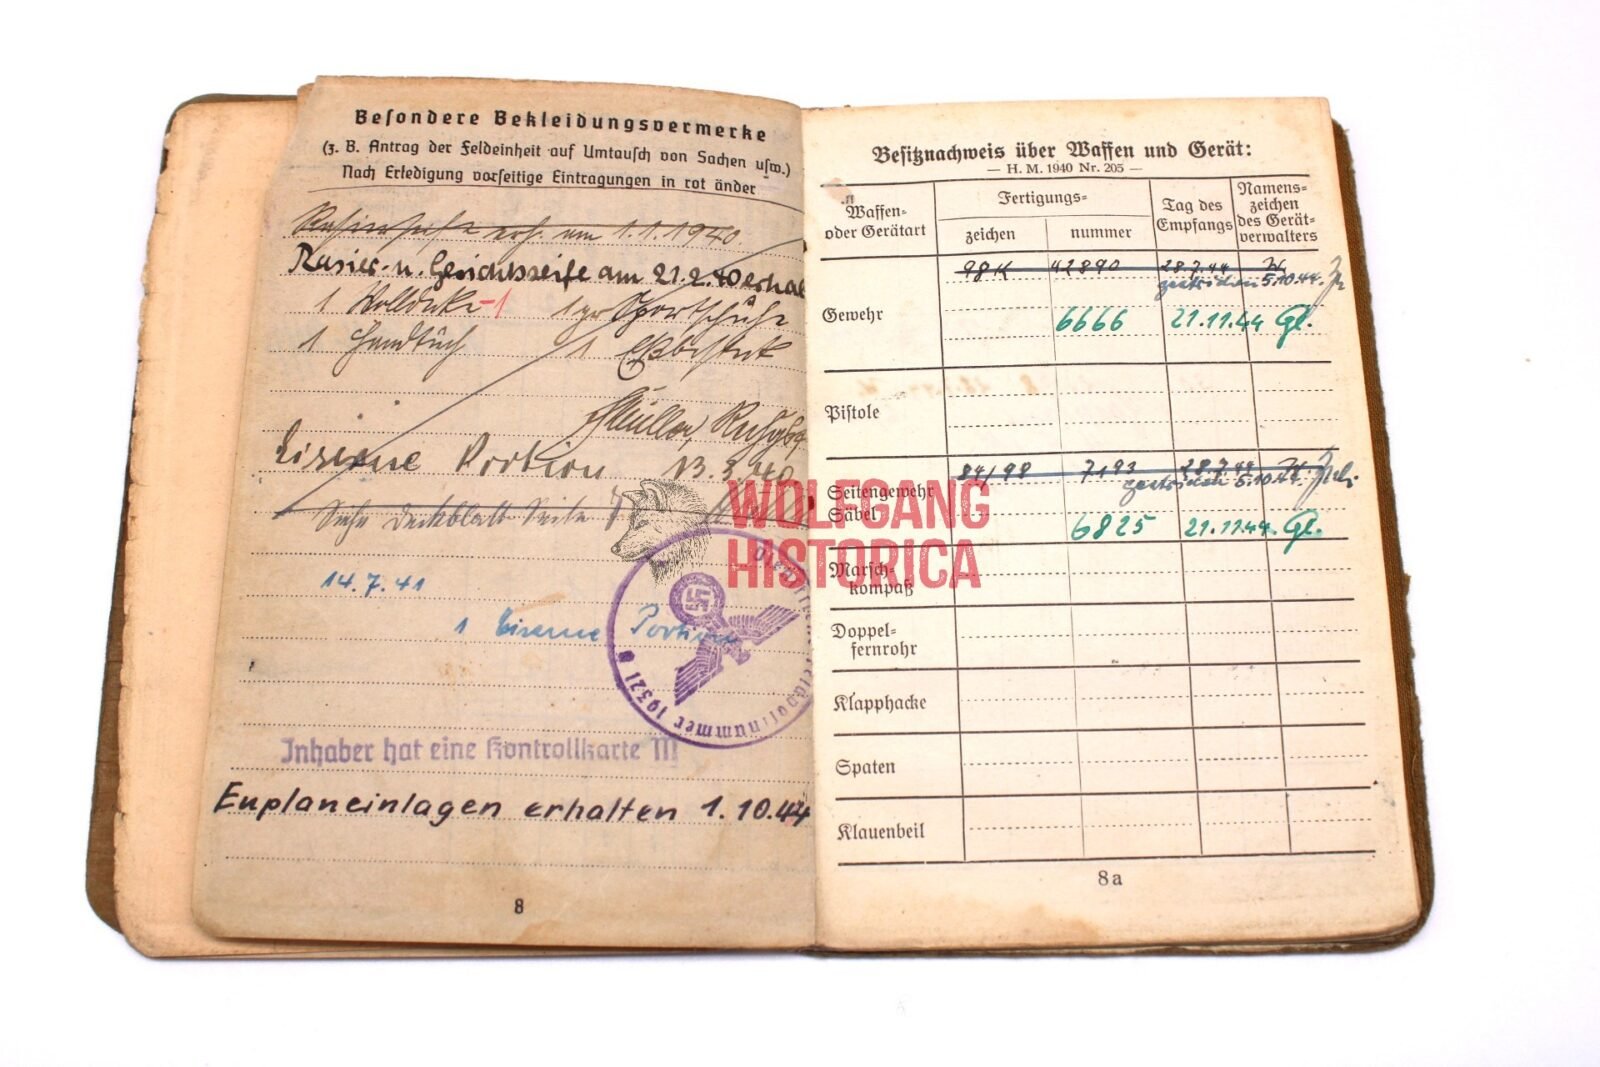 Besondere Bekleidungsvermerke
(z. B. Antrag der Feldeinheit auf Umtausch von Sachen usw.)
Nach Erledigung vorseitige Eintragungen in rot änder
Rasierseife erh. am 1.1.1940.
Rasier- u. Gesichtsseife am 21.2.40 erhal
1 Wolldecke -1 1 gr Sportschuhe
1 Handtuch 1 Eßbesteck
Müller,
Eiserne Portion 13.3.40
Siehe Deckblatt Seite
14.7.41
1 Eiserne Portion
Feldpostnummer 19321
Inhaber hat eine Kontrollkarte III
Euplaneinlagen erhalten 1.10.44
8
Besitznachweis über Waffen und Gerät:
— H. M. 1940 Nr. 205 —
Waffen- oder Gerätart
Fertigungs-
zeichen nummer
Tag des Empfangs
Namens-zeichen des Gerät-verwalters
Gewehr
98K 42890 28.7.44
gestrichen 5.10.44.
6666 21.11.44 Gl.
Pistole
Seitengewehr Säbel
84/98 7193 28.7.44
gestrichen 5.10.44.
6825 21.11.44. Gl.
Marsch-kompaß
Doppel-fernrohr
Klapphacke
Spaten
Klauenbeil
8a
WOLFGANG
HISTORICA